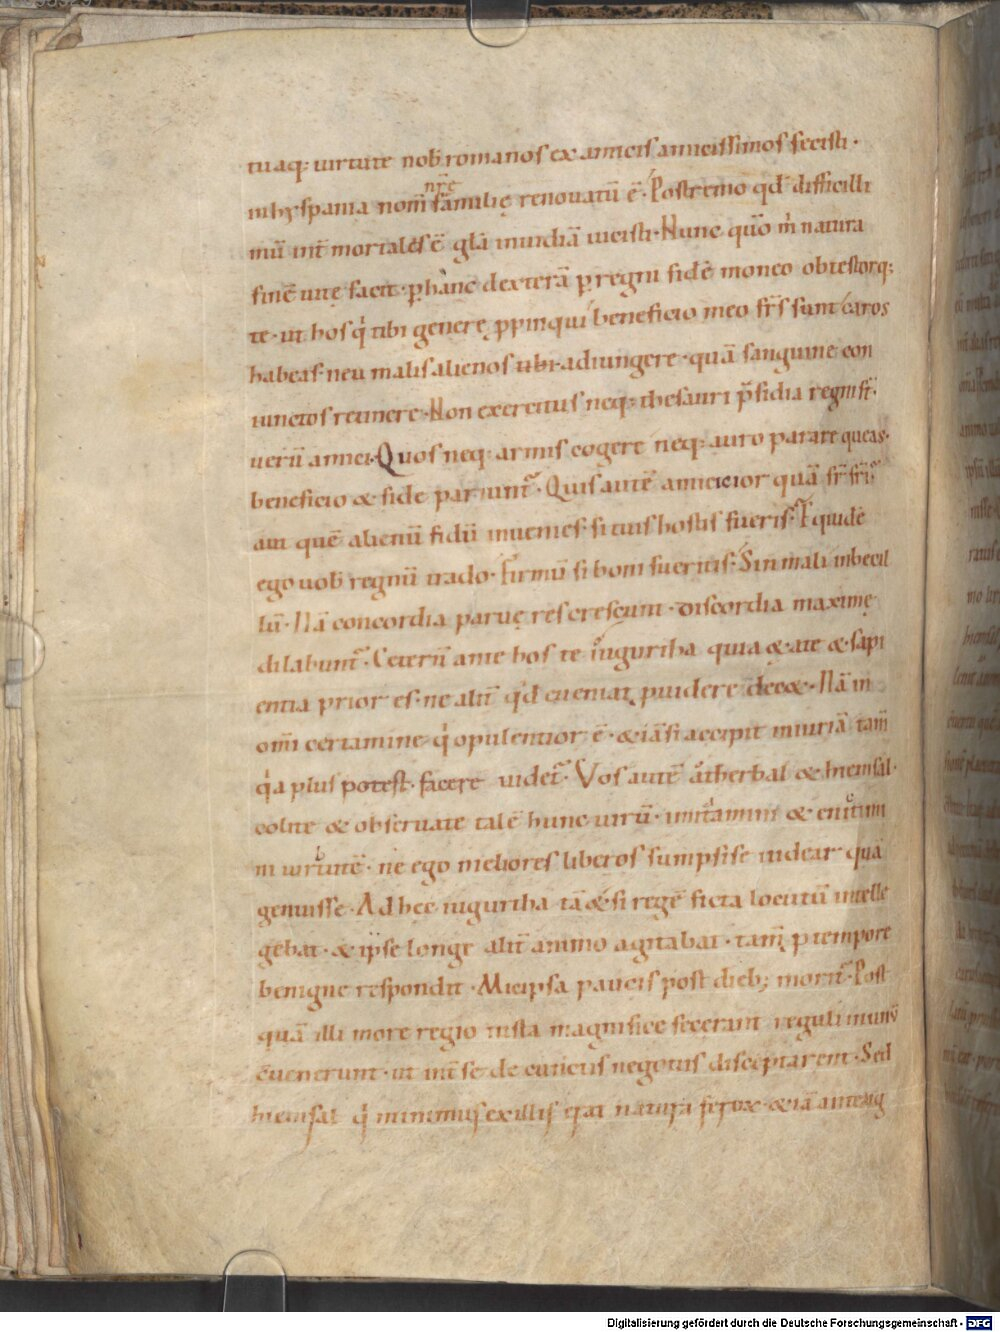 tuaq; uirtute nob̄ romanos ex amicis amicissimos fecisti ·
In hyspania nom̄ nr̄ę familię renouatū ē · Postremo qd̄ difficilli
mū int̄ mortales ē gl̄a inuidiā uicisti · Nunc qūo m̄ natura
finē uitę facit · p̱ hanc dexterā p̱ regni fidē moneo obtestorq;
te · ut hos q̇ tibi genere p̱pinqui beneficio meo fr̄s sunt caros
habeas neu malis alienos tibi adiungere · quā sanguine con
iunctos retinere · Non exercitus neq; thesauri p̄sidia regni st̄ ·
uerū amici · Quos neq; armis cogere neq; auro parare queas ·
beneficio & fide pariunt̄ · Quis autē amicicior quā fr̄ fr̄i
aut quē alienū fidū inuenies · si tuis hostis fueris · Equidē
ego uob̄ regnū trado · Firmū si boni fueritis · Sin mali inbecil
lū · Nā concordia paruę res crescunt · Discordia maximę
dilabunt̄ · Ceterū ante hos te iugurtha quia & ate & sapi
entia prior es · ne alit̄ qd̄ eueniat p̱uidere decet · Nā in
om̄i certamine q̇ opulentior ē · & iā si accipit iniuriā tam̄
q̇a plus potest · facere uidet̄ · Vos autē atherbal & hiemsal ·
colite & obseruate talē hunc uirū · imitamini & enitimi
ni uirtutē · ne ego meliores liberos sumpsise uidear quā
genuisse · Ad hęc iugurtha tā & si regē ficta locutū intelle
gebat · & ipse longe alit̄ animo agitabat · tam̄ p̱ tempore
benigne respondit · Micipsa paucis post dieb; morit̄ · Post
quā illi more regio iusta magnifice fecerant reguli inunū
euenerunt · ut int̄ se de cunctis negotiis disceptarent · Sed
hiemsal q̇ minimus ex illis erat natura ferox · & iā ante ig
Digitalisierung gefördert durch die Deutsche Forschungsgemeinschaft - DFG